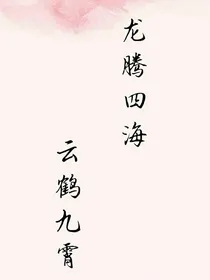 龙腾四海
云鹤九霄